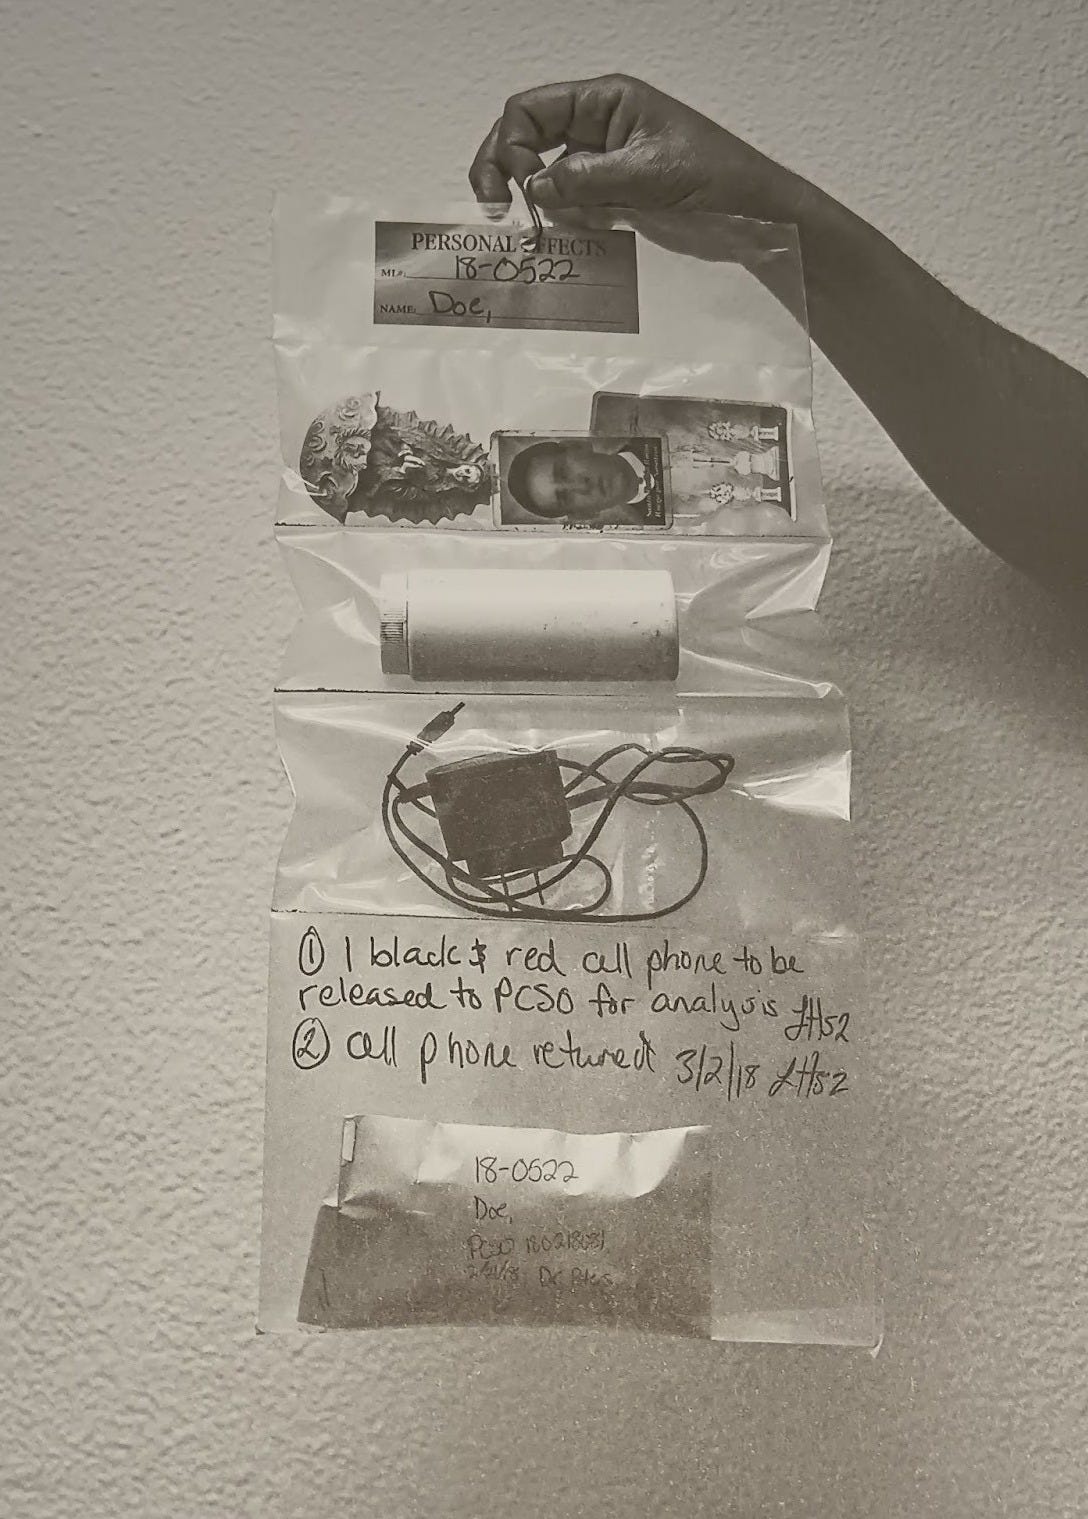 PERSONAL EFFECTS
ML#: 18-0522
NAME: Doe,
① 1 black & red cell phone to be
released to PCSO for analysis LH52
② cell phone returned 3/2/18 LH52
18-0522
Doe,
PCSO 180218081
Dr